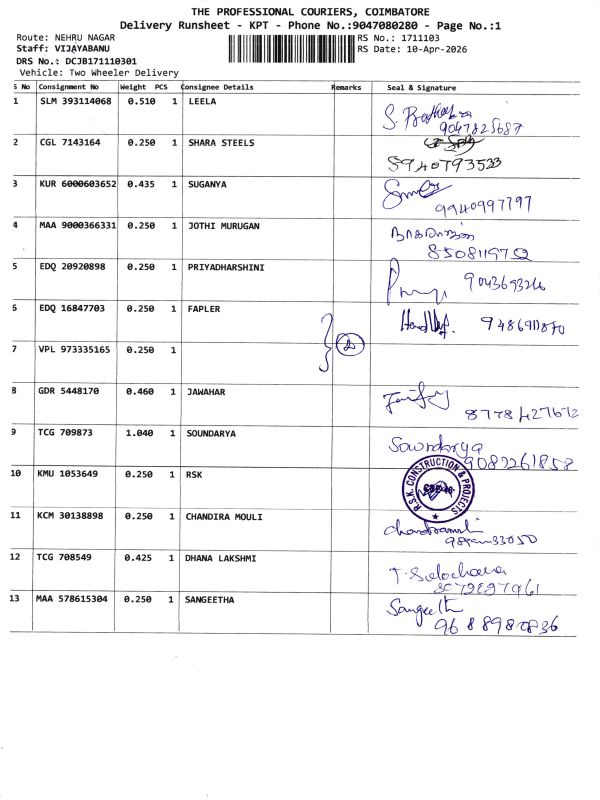 THE PROFESSIONAL COURIERS, COIMBATORE
Delivery Runsheet - KPT - Phone No.:9047080280 - Page No.:1
Route: NEHRU NAGAR RS No.: 1711103
Staff: VIJAYABANU RS Date: 10-Apr-2026
DRS No.: DCJB171110301
Vehicle: Two Wheeler Delivery
S No Consignment No Weight PCS Consignee Details Remarks Seal & Signature
1 SLM 393114068 0.510 1 LEELA
9047825687
2 CGL 7143164 0.250 1 SHARA STEELS
5940793533
3 KUR 6000603652 0.435 1 SUGANYA
9940997797
4 MAA 9000366331 0.250 1 JOTHI MURUGAN
8508119752
5 EDQ 20920898 0.250 1 PRIYADHARSHINI
6 EDQ 16847703 0.250 1 FAPLER
2
7 VPL 973335165 0.250 1
8 GDR 5448170 0.460 1 JAWAHAR
8778427672
9 TCG 709873 1.040 1 SOUNDARYA Soundarya
9089261858
10 KMU 1053649 0.250 1 RSK R.S.K. CONSTRUCTION & PROJECTS
11 KCM 30138898 0.250 1 CHANDIRA MOULI
12 TCG 708549 0.425 1 DHANA LAKSHMI
T. Sulochana
13 MAA 578615304 0.250 1 SANGEETHA Sangeeth
9688980836